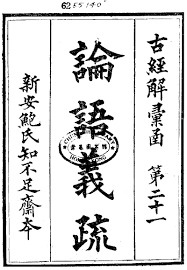 6255140
古經解彙函 第二十一
論語義疏
新安鮑氏知不足齋本